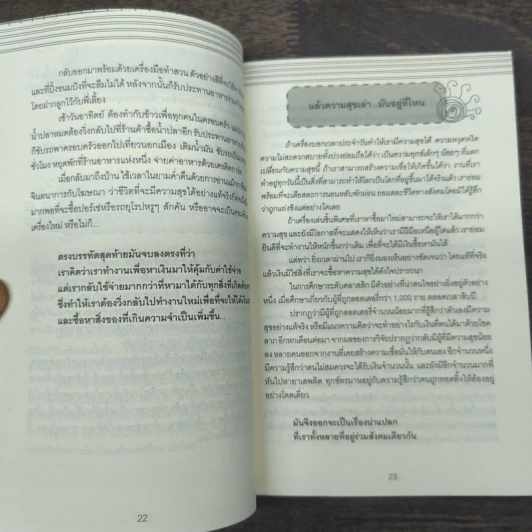 กลับออกมาพร้อมด้วยเครื่องมือทำสวน ตัวอย่างสีที่จะใช้
และที่ปิ้งขนมปังที่จะลืมไม่ได้ หลังจากนั้นก็รับประทานอาหาร
โดยฝากลูกไว้กับพี่เลี้ยง
เช้าวันอาทิตย์ ต้องทำกับข้าวเพื่อทุกคนในครอบครัว
น้ำปลาหมดต้องวิ่งกลับไปที่ร้านค้าซื้อน้ำปลาอีก รับประทานอาหาร
ก็ขับรถพาครอบครัวออกไปเที่ยวนอกเมือง เติมน้ำมัน ขับรถ
ชั่วโมง หยุดพักที่ร้านอาหารแห่งหนึ่ง จ่ายค่าอาหารด้วยเครดิตการ์ด
เมื่อกลับมาถึงบ้าน ใช้เวลาในยามค่ำคืนด้วยการอ่านแม็กกาซีน
จินตนาการกับโฆษณา ว่าชีวิตที่จะมีความสุขได้อย่างแท้จริง
มากพอที่จะซื้อปอร์เช่หรือรถยุโรปหรูๆ สักคัน หรืออาจจะเป็น
เครื่องใหม่ หรือไม่ก็...
ตรงบรรทัดสุดท้ายมันจบลงตรงที่ว่า
เราคิดว่าเราทำงานเพื่อหาเงินมาให้คุ้มกับค่าใช้จ่าย
แต่เรากลับใช้จ่ายมากกว่าที่หามาได้กับทุกสิ่งที่เกิด
ซึ่งทำให้เราต้องวิ่งกลับไปทำงานใหม่เพื่อที่จะให้ได้เงิน
และซื้อหาสิ่งของที่เกินความจำเป็นเพิ่มขึ้น...
22
แล้วความสุขเล่า...มันอยู่ที่ไหน
ถ้าเครื่องบอกเวลาประจำวันทำให้เรามีความสุขได้ ความหงุดหงิด
ความไม่สะดวกสบายทั้งปวงย่อมถือได้ว่า เป็นความทุกข์เล็กๆ น้อยๆ ที่แลก
เปลี่ยนกับความสุขนี้ ถ้าเราสามารถสร้างความเชื่อให้เกิดขึ้นได้ว่า งานที่เรา
ทำอยู่ทุกวันนี้เป็นสิ่งที่สามารถทำให้โลกเป็นโลกที่อยู่ขึ้นมาได้จริงแล้ว เราย่อม
พร้อมที่จะเสียสละการนอนหลับพักผ่อน ยอมสละชีวิตทางสังคมโดยมิได้รู้สึก
ว่าถูกแย่งชิงแต่อย่างใดเลย
ถ้าเครื่องเล่นชิ้นพิเศษที่เราหาซื้อมาใหม่สามารถจะให้เราได้มากกว่า
ความสุข และยังมีโอกาสที่จะแสดงให้เห็นว่าเรามีฝีมือเหนือผู้ใดแล้ว เราย่อม
ยินดีที่จะทำงานให้หนักขึ้นกว่าเดิม เพื่อที่จะได้มีเงินซื้อหามันได้
แต่ทว่า ยิ่งเวลาผ่านไป เราก็ยิ่งมองเห็นอย่างชัดเจนว่า โดยแท้ที่จริง
แล้วเงินมิใช่สิ่งที่เราจะซื้อหาความสุขได้ดังใจปรารถนา
ในการศึกษาระดับคลาสสิก มีตัวอย่างที่น่าสนใจอย่างยิ่งอยู่ตัวอย่าง
หนึ่ง เมื่อศึกษาเกี่ยวกับผู้ที่ถูกลอตเตอรี่กว่า 1,000 ราย ตลอดเวลาสิบปี
ปรากฏว่ามีผู้ที่ถูกลอตเตอรี่จำนวนน้อยมากที่รู้สึกว่าตัวเองมีความ
สุขอย่างแท้จริง หรือมีแนวความคิดว่าจะทำอย่างไรกับเงินที่ตนได้มาด้วยโชค
ลาภ อีกหกเดือนต่อมา จากผลของการวิจัยปรากฏว่ากลับมีผู้ที่มีความสุขน้อย
ลง หลายคนออกจากงานที่เคยสร้างความเชื่อมั่นให้กับตนเอง อีกจำนวนหนึ่ง
มีความรู้สึกว่าตนไม่สมควรจะได้รับเงินจำนวนนั้น และยังมีอีกจำนวนมากที่
หันไปหายาเสพติด ทุกข์ทรมานอยู่กับความรู้สึกว่าตนถูกทอดทิ้งให้ต้องอยู่
อย่างโดดเดี่ยว
มันจึงออกจะเป็นเรื่องน่าแปลก
ที่เราทั้งหลายที่อยู่ร่วมสังคมเดียวกัน
23